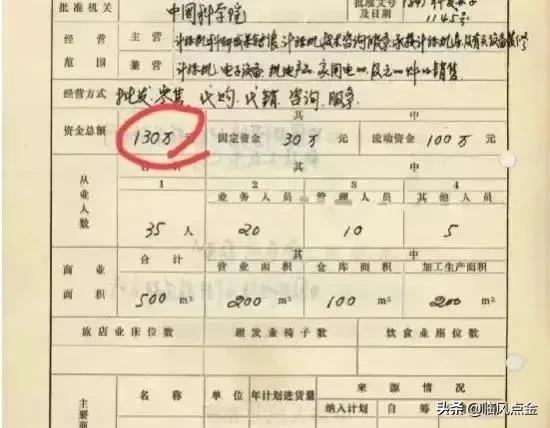 批准机关 中国科学院 批准文号及日期
1145号
经营范围 主营 计算机科研成果转让 计算机技术咨询服务
兼营 计算机、电子设备、机电产品、家用电 销售
经营方式 批发、零售、代购、代销、咨询、服务
其 中
资金总额 130万元 固定资金 30万 元 流动资金 100万 元
从业人数 合 计 其 中
1 2 3 4
业务人员 管理人员 其他人员
35 人 20 10 5
商业面积 合 计 其 中
营业面积 仓库面积 加工生产面积
500 m² 200 m² 100 m² 200 m²
旅店业床位数 理发业椅子数 饮食业座位数
主要商 名 称 单 位 年计划进货量 来 源 情 况
纳入计划 自 筹
头条 @临风点金